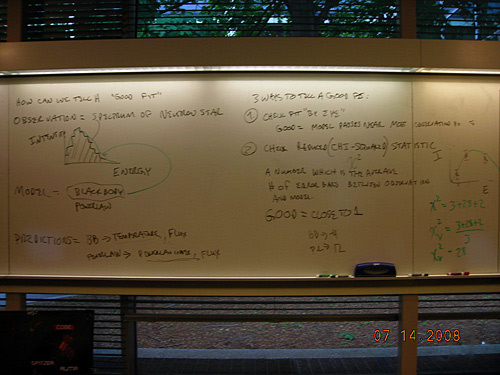 HOW CAN WE TELL A "GOOD FIT"
OBSERVATION = SPECTRUM OF NEUTRON STAR
INTENSITY
ENERGY
MODEL = BLACKBODY
POWERLAW
PREDICTIONS = BB → TEMPERATURE, FLUX
POWERLAW → FLUX
3 WAYS TO TELL A GOOD FIT:
① CHECK FIT "BY EYE"
GOOD = MODEL PASSES NEAR MOST OBSERVATION
② CHECK REDUCED (CHI-SQUARED) STATISTIC
X²
A NUMBER WHICH IS THE AVERAGE
# OF ERROR BARS BETWEEN OBSERVATION
AND MODEL
GOOD = CLOSE TO 1
I
E
X² = 3+28+2
= 3+28+2
3
07 14 2008
CODE:
SPITZER